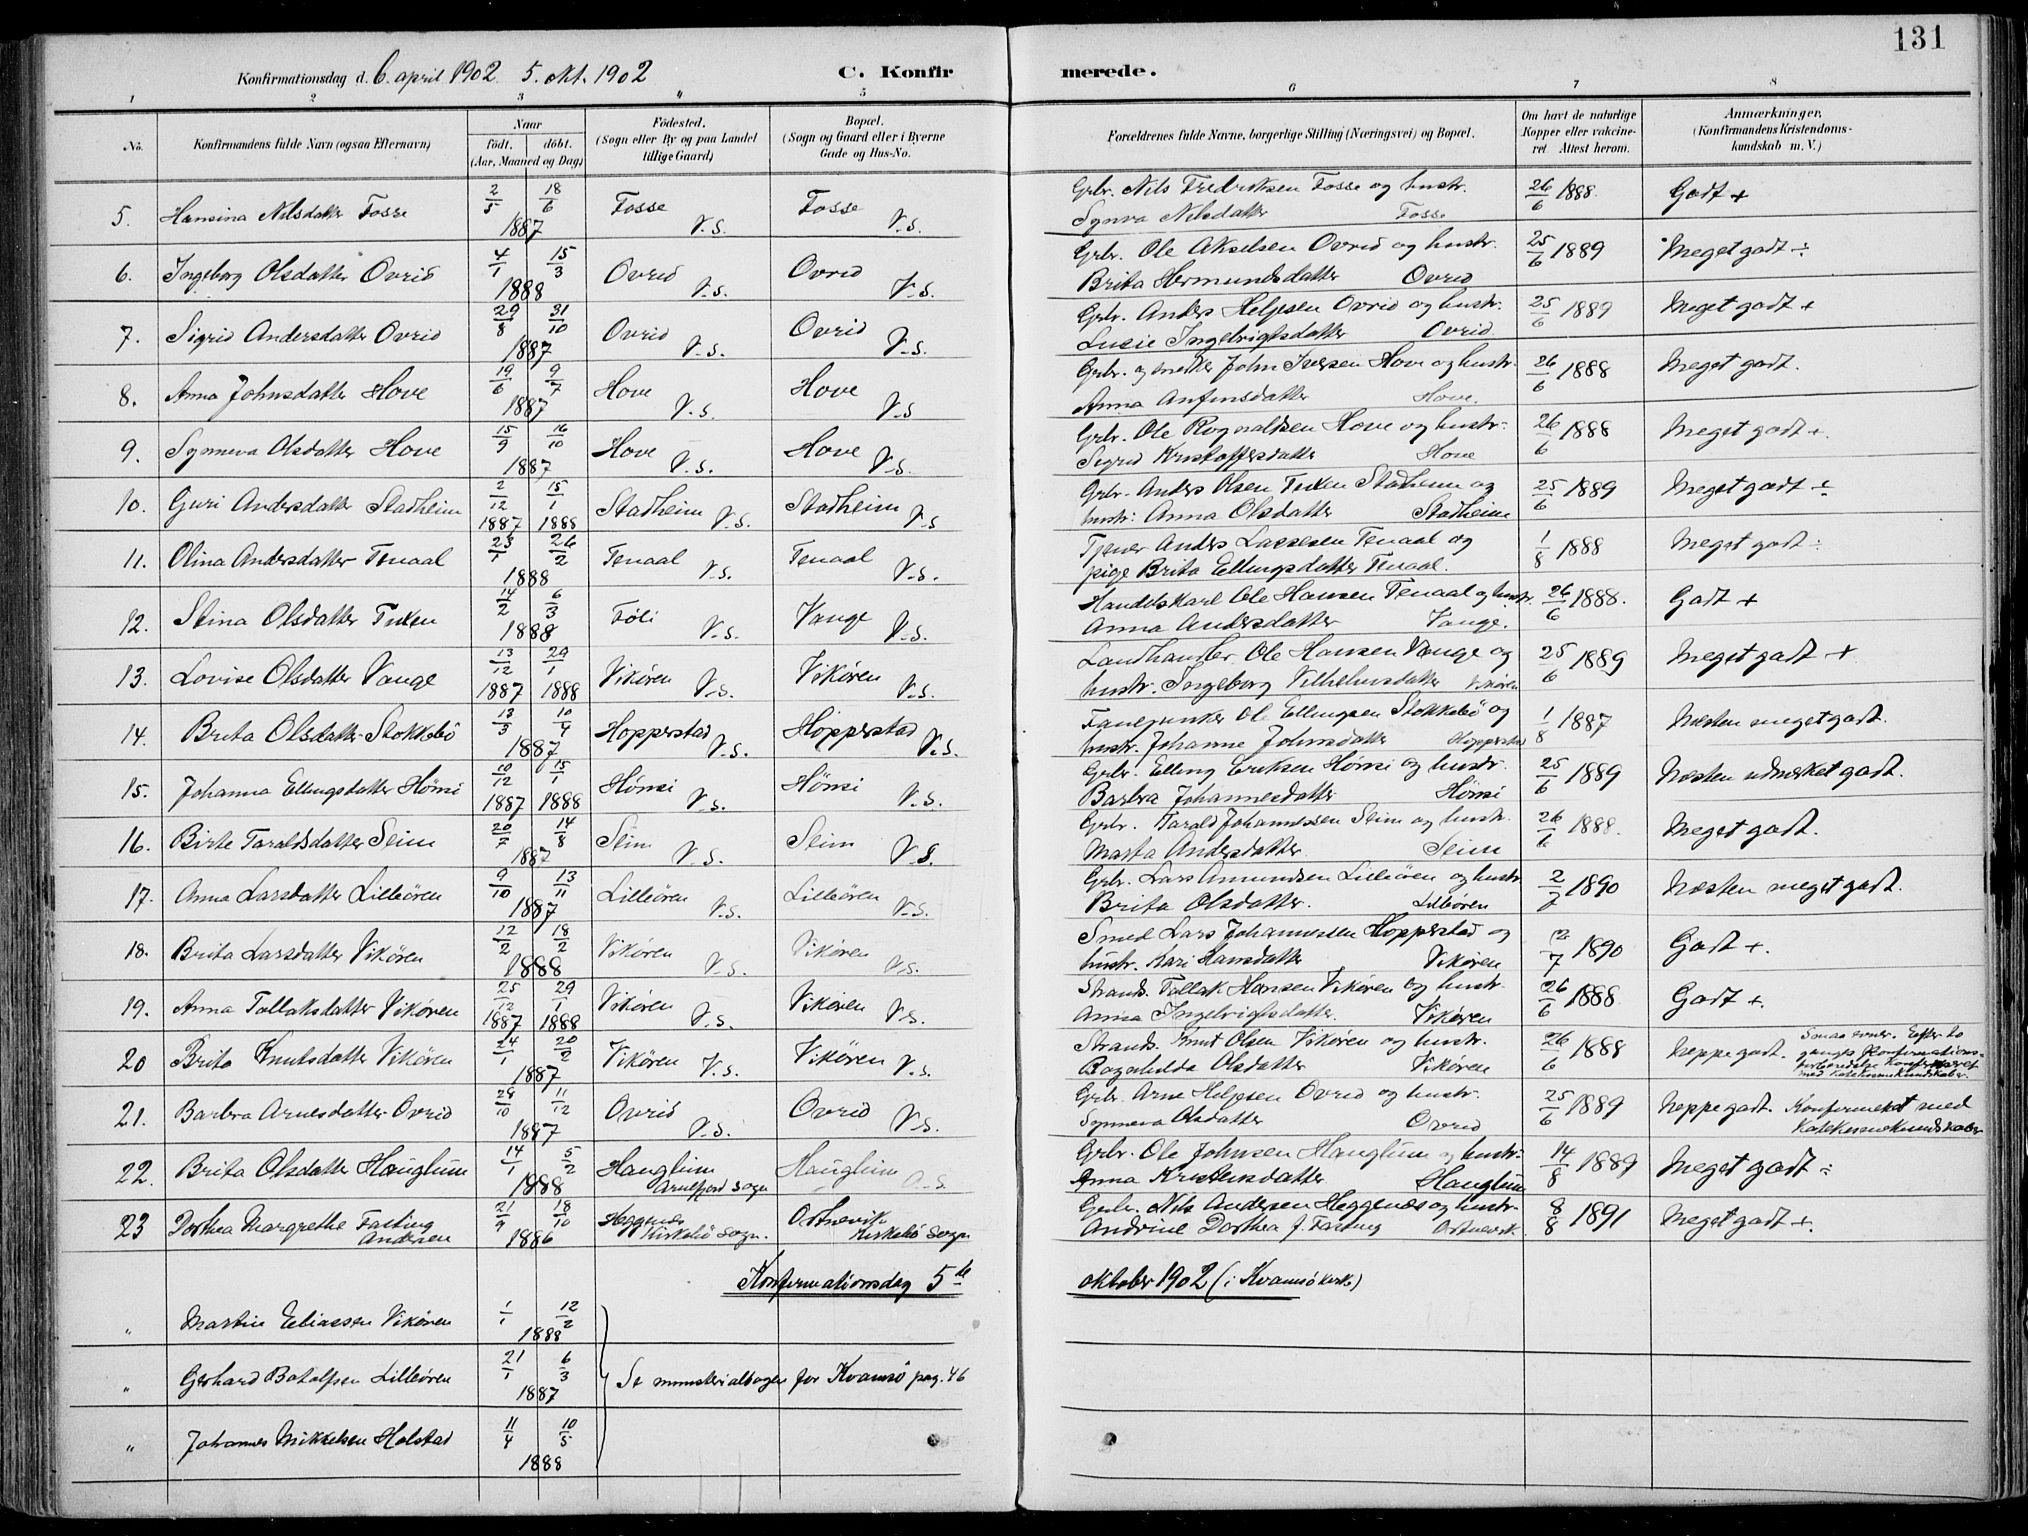 131
Konfirmationsdag d. 6. april 1902 5. okt. 1902
C. Konfirmerede.
1 2 3 4 5 6 7 8
No. Konfirmandens fulde Navn (ogsaa Efternavn)
Naar födt. döbt. (Aar, Maaned og Dag)
Födested. (Sogn eller By og paa Landet tillige Gaard)
Bopæl. (Sogn og Gaard eller i Byerne Gade og Hus-No.
Forældrenes fulde Navne, borgerlige Stilling (Næringsvei) og Bopæl.
Om havt de naturlige Kopper eller vakcineret. Attest herom.
Anmærkninger, (Konfirmandens Kristendomskundskab m. V.)
5. Hansina Nilsdatter Fosse 2/5 18/6 1887 Fosse V.S. Fosse V.S. Grbr. Nils Fredriksen Fosse og hustr. Synva Nilsdatter Fosse 26/6 1888. Godt +
6. Ingeborg Olsdatter Ovrid 4/1 15/3 1888 Ovrid V.S. Ovrid V.S. Grbr. Ole Akselsen Ovrid og hustr. Brita Hermundsdatter Ovrid 25/6 1889 Meget godt ÷
7. Sigrid Andersdatter Ovrid 29/8 31/10 1887 Ovrid V.S. Ovrid V.S. Grbr. Anders Heljesen Ovrid og hustr. Lusie Ingebrigtsdatter Ovrid 25/6 1889 Meget godt +
8. Anna Johnsdatter Hove 19/6 9/7 1887 Hove V.S. Hove V.S Grbr. og snedker John Iversen Hove og hustr. Anna Anfinsdatter Hove. 26/6 1888 Meget godt.
9. Synneva Olsdatter Hove 15/9 16/10 1887 Hove V.S. Hove V.S. Grbr. Ole Rognaldsen Hove og hustr. Sigrid Kristoffersdatter Hove 26/6 1888 Meget godt +.
10. Guri Andersdatter Stadheim 2/12 1887 15/1 1888 Stadheim V.S. Stadheim V.S Grbr. Anders Olsen Tuxen Stadheim og hustr: Anna Olsdatter Stadheim 25/6 1889 Meget godt ÷
11. Olina Andersdatter Tenaal 23/1 26/2 1888 Tenaal V.S. Tenaal V.S. Tjener Anders Lassesen Tenaal og pige Brita Ellingsdatter Tenaal. 1/8 1888 Meget godt ÷
12. Stina Olsdatter Tuxen 14/2 6/3 1888 Föli V.S. Vange V.S. Handelskarl Ole Hansen Tenaal og hustr. Anna Andersdatter Vange. 26/6 1888. Godt +
13. Lovise Olsdatter Vange 13/12 1887 29/1 1888 Vikören V.S. Vikören V.S. Landhandler Ole Hansen Vange og hustr. Ingeborg Vilhelmsdatter Vikören 25/6 1889 Meget godt +
14. Brita Olsdatter Stokkebö 13/3 10/4 1887 Hopperstad V.S. Hopperstad V.S. Fanejunker Ole Ellingsen Stokkebö og hustr. Johanne Johnsdatter Hopperstad 1/8 1887 Næsten meget godt.
15. Johanna Ellingsdatter Hönsi 10/12 1887 15/1 1888 Hönsi V.S. Hönsi V.S. Grbr. Elling Eriksen Hönsi og hustr. Barbra Johannesdatter Hönsi 25/6 1889 Næsten udmerket godt.
16. Birte Taraldsdatter Seim 20/7 14/8 1887 Seim V.S. Seim V.S. Grbr. Tarald Johannessen Seim og hustr. Marta Andersdatter Seim 26/6 1888. Meget godt.
17. Anna Larsdatter Lilleören 9/10 13/11 1887 Lilleören V.S. Lilleören V.S. Grbr. Lars Amundsen Lilleören og hustr Brita Olsdatter. Lilleören 2/7 1890 Næsten meget godt.
18. Brita Larsdatter Vikören 12/2 18/2 1888 Vikören V.S. Vikören V.S. Smed Lars Johannessen Hopperstad og hustr. Kari Hansdatter Vikören 2/7 1890 Godt +.
19. Anna Tollaksdatter Vikören 25/12 1887 29/1 1888 Vikören V.S. Vikören V.S. Strands. Tollak Hansen Vikören og hustr. Anna Ingebrigtsdatter. Vikören 26/6 1888. Godt +.
20 Brita Knutsdatter Vikören 24/1 20/2 1887 Vikören V.S. Vikören V.S. Strands. Knut Olsen Vikören og hustr. Ragnhilda Olsdatter Vikören 26/6 1888 Neppe godt. Smaa evner. Efter to ganges Konfirmationsforberedelse Konfirmeret med Katekumenkundskaber.
21. Barbra Arnesdatter Ovrid 29/10 11/12 1887 Ovrid V.S. Ovrid V.S. Grbr. Arne Heljesen Ovrid og hustr. Synneva Olsdatter Ovrid 25/6 1889 Neppe godt. Konfirmeret med Katekumenkundskaber
22. Brita Olsdatter Hauglum 14/1 5/2 1888 Hauglum Arnefjord Sogn Hauglum A.S. Grbr. Ole Johnsen Hauglum og hustr: Anna Kristensdatter Hauglum 14/8 1889 Meget godt ÷
23 Dorthea Margrethe Fasting Andersen 21/9 18/10 1886 Heggenes Kirkebö Sogn. Ortnevik Kirkebö Sogn Grbr. Nils Andersen Heggenæs og hustr. Andrine Dorthea f. Fasting Ortnevik. 8/8 1891 Meget godt +.
Konfirmationsdag 5te oktober 1902 (i Kvamsö kirke)
" Martin Eliassen Vikören 1/1 12/2 1888
" Gerhard Botolfsen Lilleören 21/1 6/3 1887 Se ministerialbogen for Kvamsö pag. 46
" Johannes Mikkelsen Holstad 11/4 10/5 1888